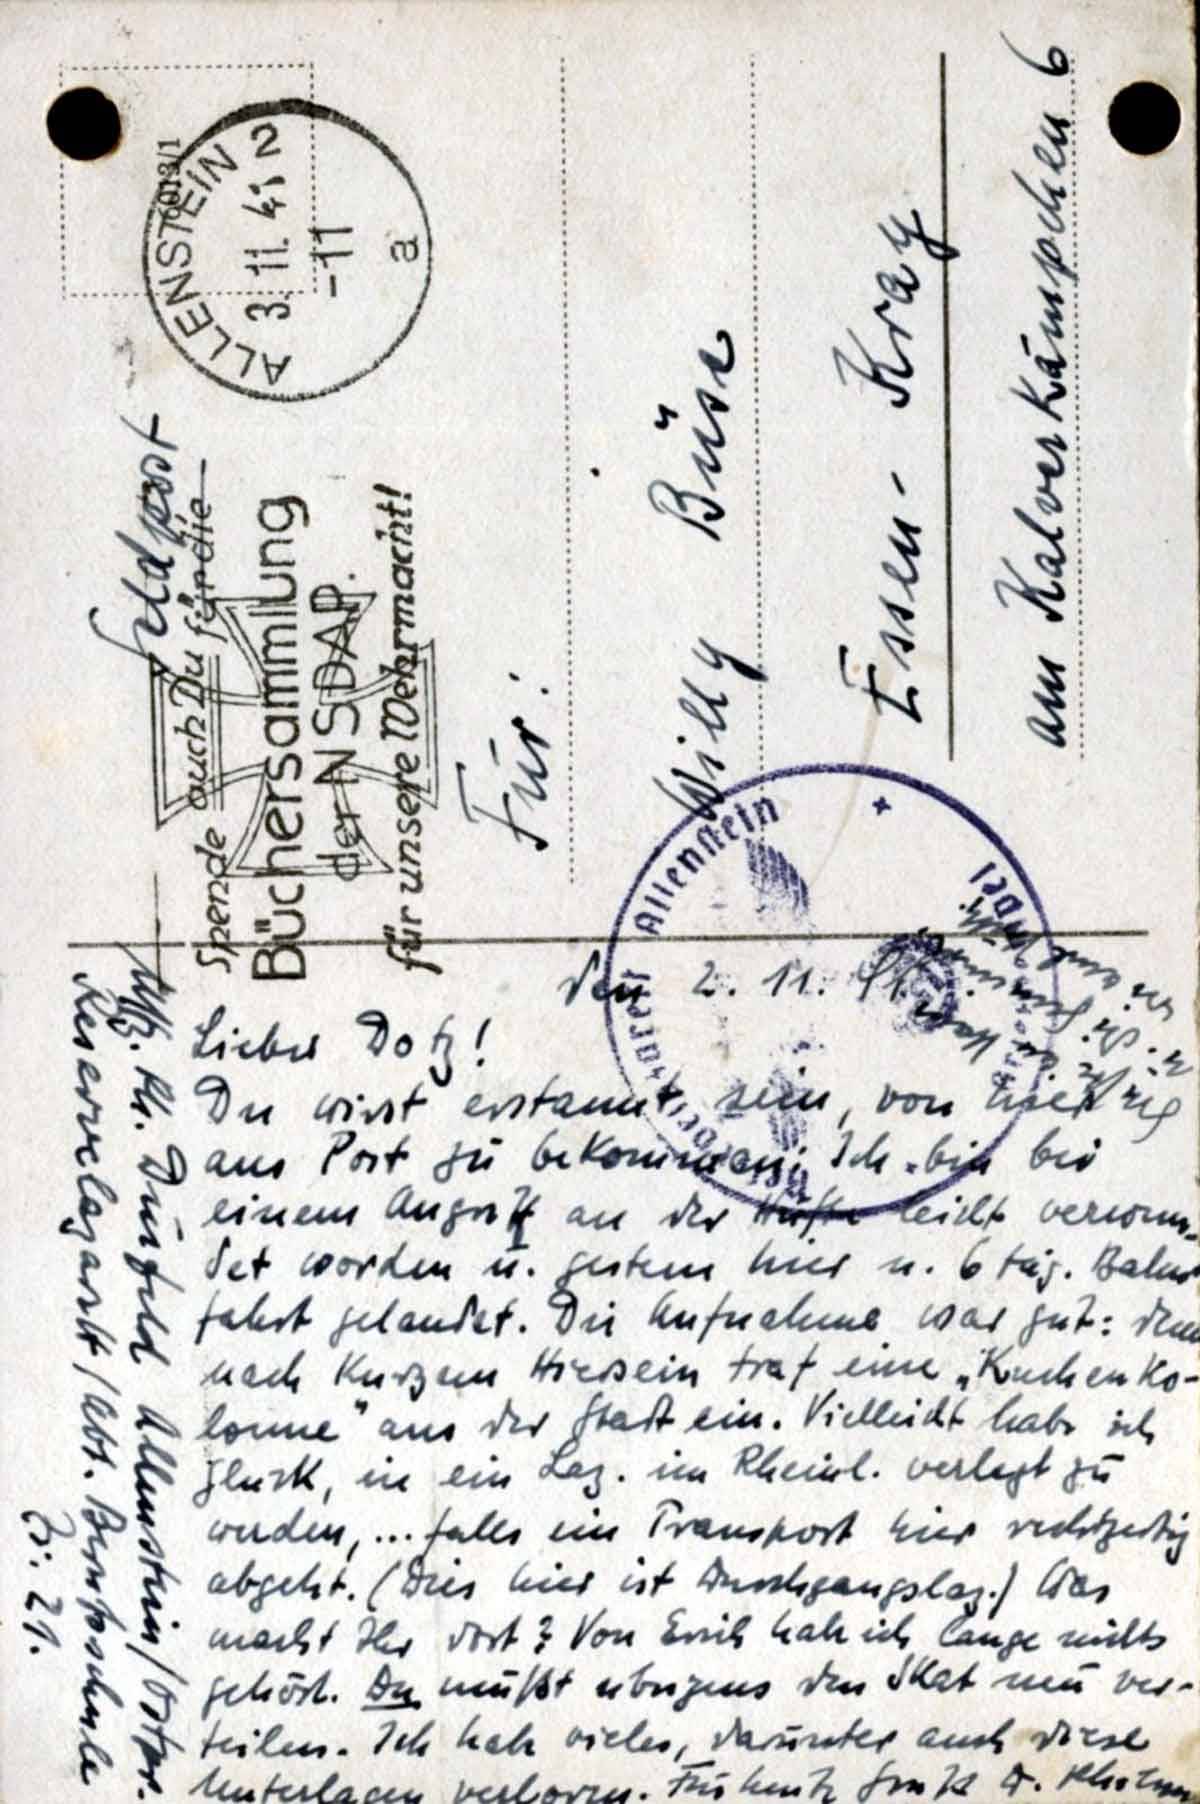 Feldpost
ALLENSTEIN 2
3.11.41
-11
a
Spende auch Du für die
Büchersammlung
der NSDAP.
für unsere Wehrmacht!
Für:
Willy Büse
Essen-Kray
am Kalverkämpchen 6
Allenstein
Uffz. Kl. Allenstein/Ostpr.
Reservelazarett/Abt. Berufsschule
Zi. 21.
den 2.11.41.
Lieber Dotz!
Du wirst erstaunt sein, von hier
aus Post zu bekommen. Ich bin bei
einem Angriff an der Hüfte leicht verwun-
det worden u. gestern hier n. 6 täg. Bahn
fahrt gelandet. Die Aufnahme war gut: denn
nach kurzem Hiersein traf eine „Kuchenko-
lonne" aus der Stadt ein. Vielleicht habe ich
Glück, in ein Laz. im Rheinl. verlegt zu
werden, ... falls ein Transport hier rechtzeitig
abgeht. (Dies hier ist Durchgangslaz.) Was
macht Ihr dort? Von Erich hab ich lange nichts
gehört. Du mußt übrigens den Skat neu ver-
teilen. Ich hab vieles, darunter auch diese
Unterlagen verloren. Für heute